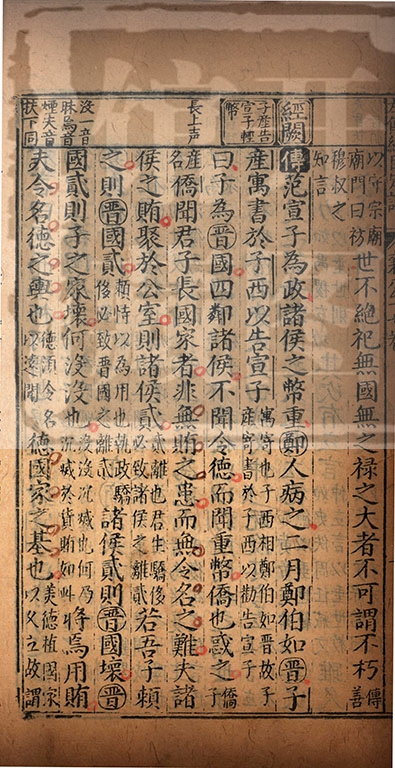 以守宗廟
廟門曰祊
世不絶祀無國無之禄之大者不可謂不朽
傳善
穆叔之
知言
經闕
傳范宣子為政諸侯之幣重鄭人病之二月鄭伯如晉子
子產告
宣子輕
幣
產寓書於子西以告宣子
寓寄也子西相鄭伯如晉故子
產寄書於子西以勸告宣子
曰子為晉國四鄰諸侯不聞令德而聞重幣僑也惑之
僑子
長上声
產名
僑聞君子長國家者非無賄之患而無令名之難夫諸
侯之賄聚於公室則諸侯貳
貳離也君生驕侈
必致諸侯之離貳
若吾子頼
之則晉國貳
頼恃以為用也執政驕
侈必致晉國之離貳
諸侯貳則晉國壞晉
沒一音
昧焉音
煙夫音
扶下同
國貳則子之家壞何沒沒也
沒沒沉滅也何乃
沉滅於貨賄如此
將焉用賄
夫令名德之輿也
德須令名
以遠聞
德國家之基也
美德植國家
以久立故謂